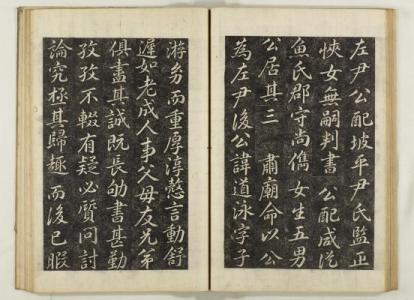 左尹公配坡平尹氏監正
悏女無嗣判書 公配咸從
魚氏郡守尚儁女生五男
公居其三 肅廟命以公
為左尹後公諱道泳字子
游务而重厚淳慤言動舒
遲如老成人事父母友兄弟
俱盡其誠既長劬書甚勤
孜孜不輟有疑必質問討
論究極其歸趣而後已暇